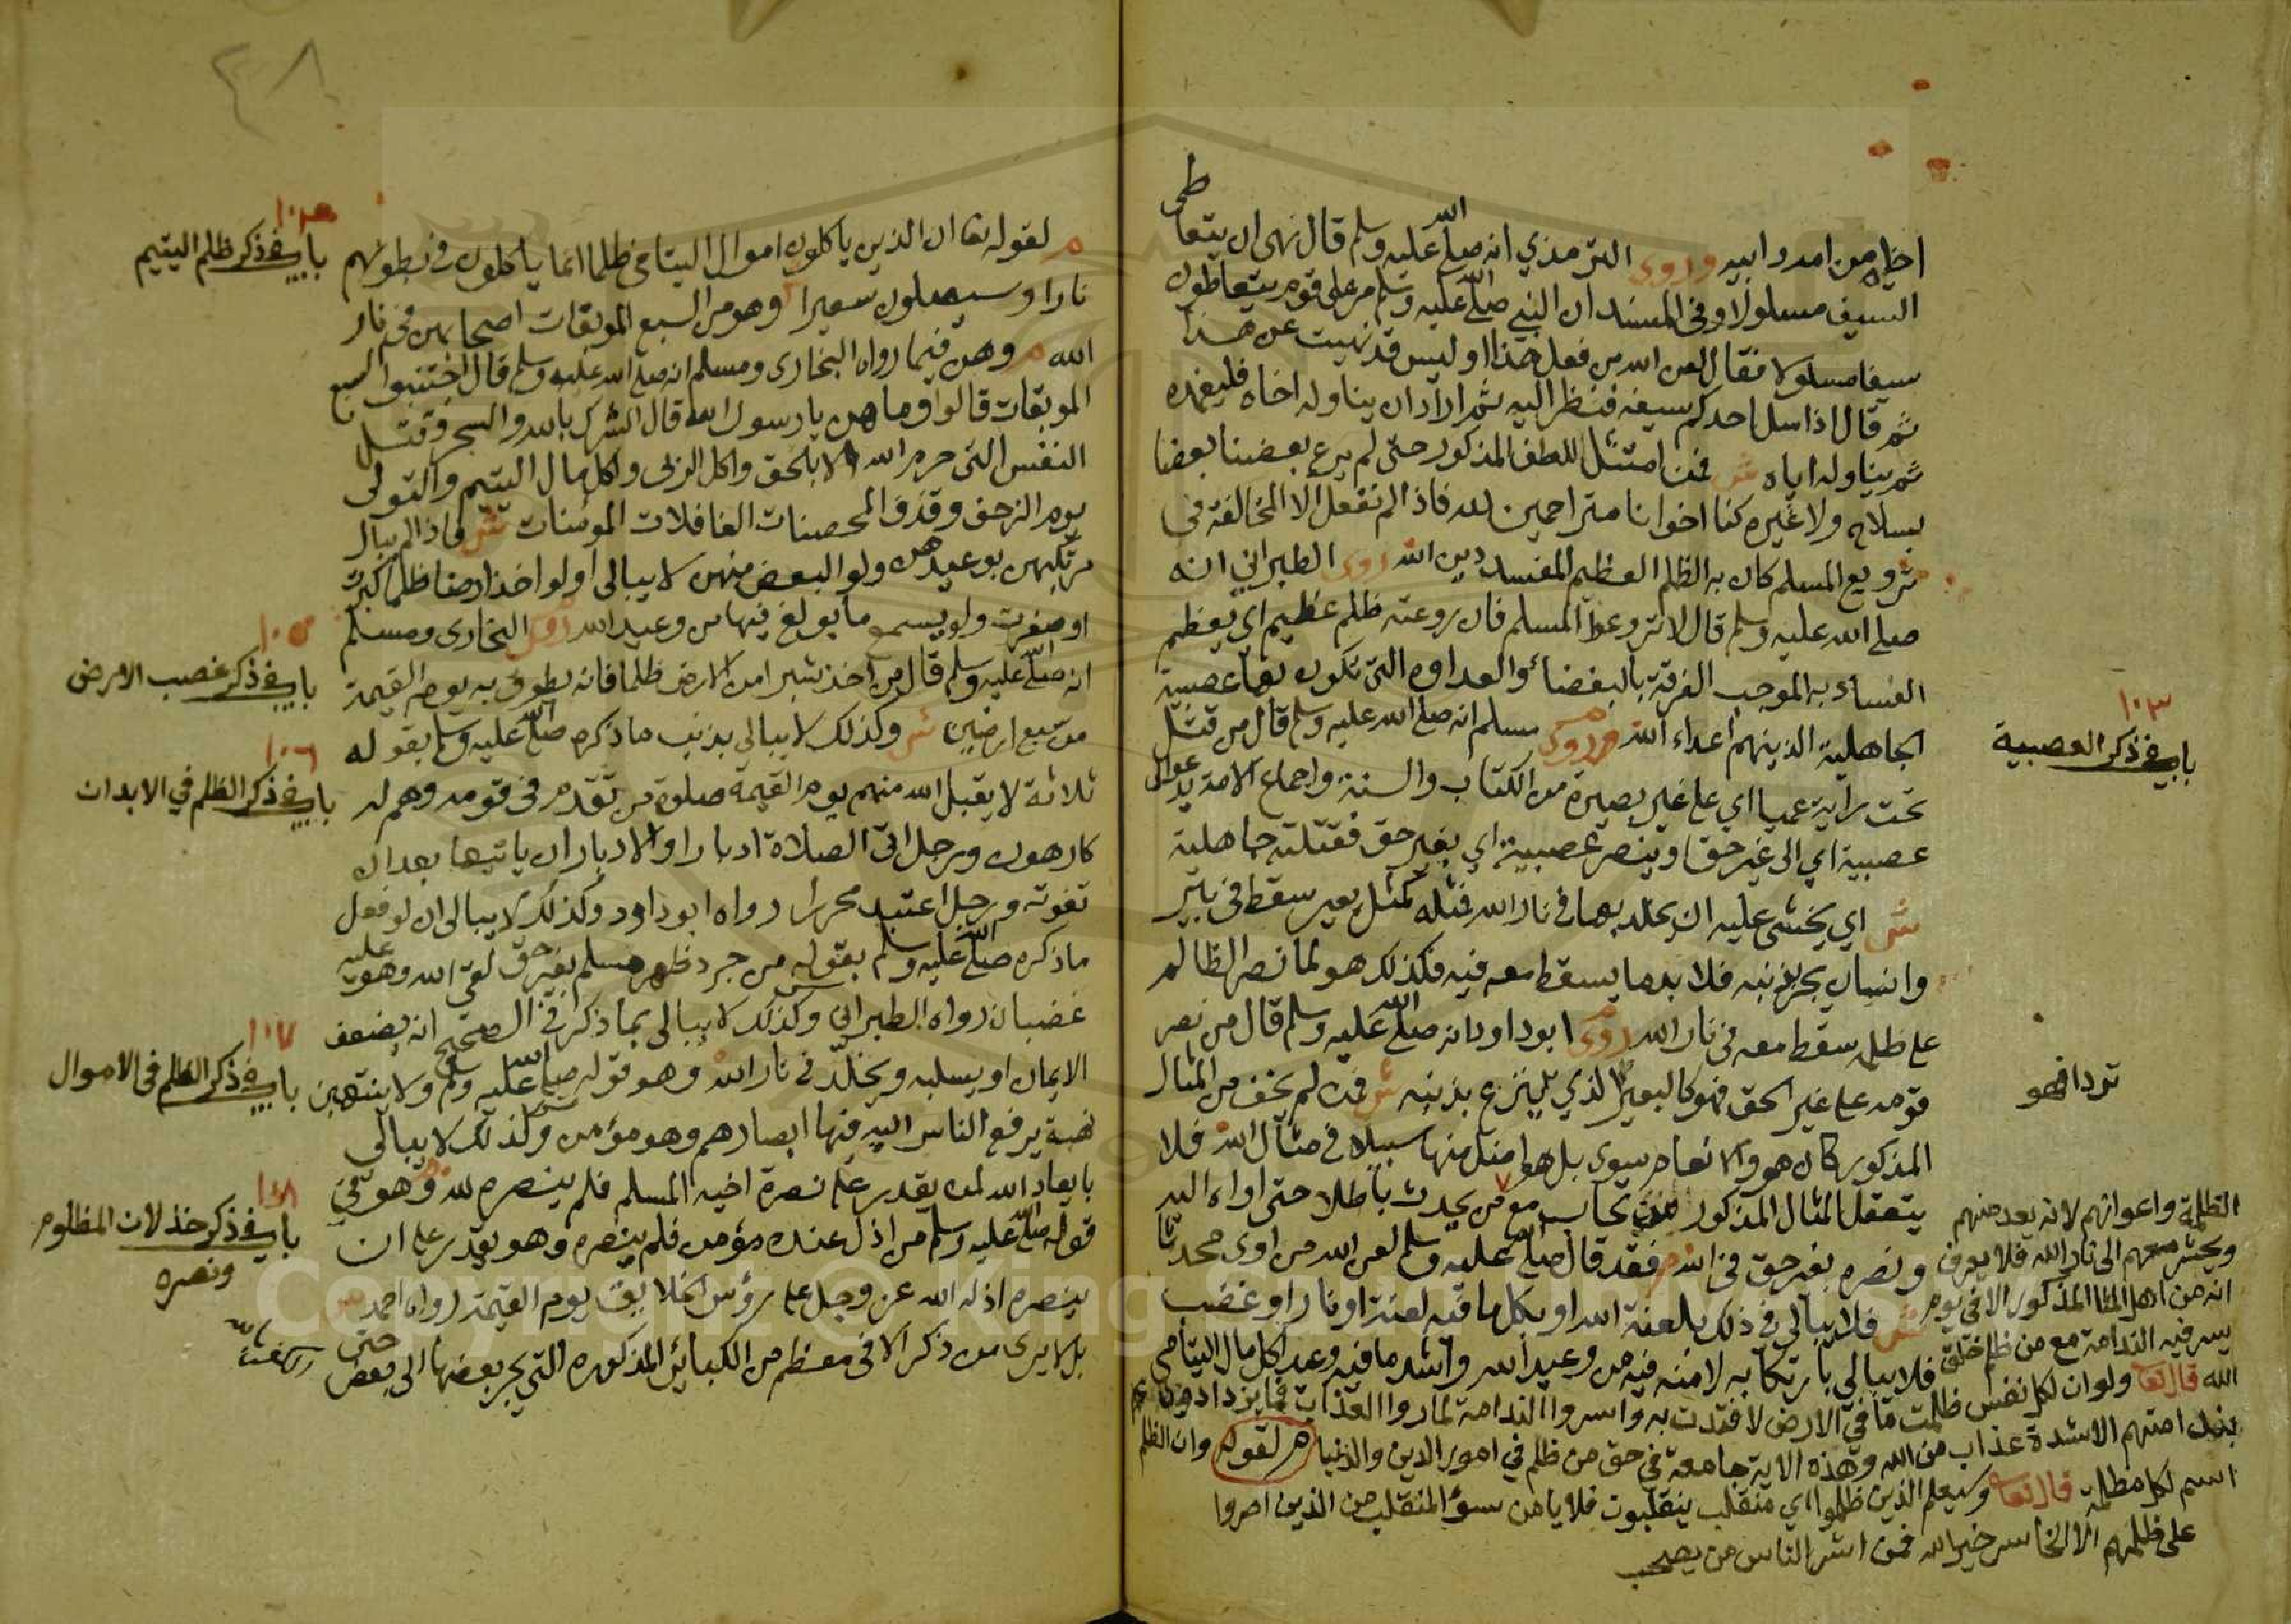 اخيه من امه وابيه وروى الترمذي انه صلى الله عليه وسلم قال نهى ان يتعاطى
السيف مسلولا وفي المسند ان النبي صلى الله عليه وسلم مر على قوم يتعاطون
سيفا مسلولا فقال لعن الله من فعل هذا او ليس قد نهيت عن هذا
ثم قال اذا سل احدكم سيفه فنظر اليه ثم اراد ان يناوله اخاه فليغمده
ثم يناوله اياه ش فمن امتثل اللطف المذكور حتى لم يرع بعضنا بعضا
بسلاح ولا غيره كنا اخوانا متراحمين لله فاذا لم نفعل الا المخالفة في
ترويع المسلم كان به الظلم العظيم المفسد دين الله روى الطبراني انه
صلى الله عليه وسلم قال لا تروعوا المسلم فان روعته ظلم عظيم اي يعظم
الفساد به الموجب الفرقة بالبغضاء والعداوه التي تكون بها عصبية
الجاهلية الذينهم اعداء الله وروى مسلم انه صلى الله عليه وسلم قال من قتل
باب في ذكر العصبية ١٠٣
تحت راية عميا اي على غير بصيرة من الكتاب والسنة واجماع الامة يدعوا الى
عصبية اي الى غير حق او ينصر عصبية اي بغير حق فقتلته جاهلية
ش اي يخشى عليه ان يخلد بها في نار الله فمثله كمثل بعير سقط في بئر
وانسان يجر بذنبه فلا بد ما يسقط معه فيه فكذلك هو لما نصر الظالم
على ظلمه سقط معه في نار الله روى ابو داود انه صلى الله عليه وسلم قال من نصر
قومه على غير الحق فهو كالبعير الذي ينزع بذنبه ش فمن لم يخف من المثال
تردا فهو
المذكور كان هو والانعام سوى بل هو اضل منها سبيلا في مثال الله فلا
يتعقل المثال المذكور من يحاب مع من يحدث باطلا حتى اواه اليه
ونصره بغير حق في الله م فقد قال صلى الله عليه وسلم لعن الله من اوى محدثا
ش فلا يبالي في ذلك بلعنة الله او بكل ما فيه لعنة او نار او غضب
فلا يبالي بارتكابه لامنه فيه من وعيد الله واشد ما فيه وعيد اكل مال اليتامى
الظلمة واعوانهم لانه يعد منهم
ويحشر معهم الى نار الله فلا يعرف
انه من اهل المثال المذكور الا في يوم
يسر فيه الندامة مع من ظلم خلق
الله قال تعا ولو ان لكل نفس ظلمت ما في الارض لافتدت به واسروا الندامة لما رووا العذاب فما يزدادون
بندامتهم الا شدة عذاب من الله وهذه الاية جامعة في حق من ظلم في امور الدين والدنيا م لقوله وان الظلم
اسم لكل مظلمة قال تعا وسيعلم الذين ظلموا اي منقلب ينقلبون فلا يامن سوء المنقلب من الذين اصروا
على ظلمهم الا الخاسر خير الله فمن اشر الناس من يصحب
٤٨
م لقوله تعا ان الذين ياكلون اموال اليتامى ظلما انما ياكلون في بطونهم
باب في ذكر ظلم اليتيم
نارا وسيصلون سعيرا وهو من السبع الموبقات اصحابهن في نار
الله م وهن فيما رواه البخارى ومسلم انه صلى الله عليه وسلم قال اجتنبوا السبع
الموبقات قالوا وما هن يا رسول الله قال الشرك بالله والسحر وقتل
النفس التي حرم الله الا بالحق واكل الربى واكل مال اليتيم والتولى
يوم الزحف وقذف المحصنات الغافلات المؤمنات ش فاذا لم يبال
مرتكبهن بوعيدهن ولو البعض منهن لا يبالى او لو اخذ ارضا ظلما كبرت
او صغرت ولو يسمع ما بولغ فيها من وعيد الله روى البخارى ومسلم
انه صلى الله عليه وسلم قال من اخذ شبرا من الارض ظلما فانه يطوق به يوم القيمة
باب في ذكر غصب الارض ١٠٥
من سبع ارضين ش وكذلك لا يبالي بذنب ما ذكره صلى الله عليه وسلم بقوله
ثلاثة لا يقبل الله منهم يوم القيمة صلوة من تقدم في قومه وهم له
باب في ذكر الظلم في الابدان ١٠٦
كارهون ورجل اتى الصلاة ادبارا والادبار ان ياتيها بعد ان
تفوته ورجل اعتبد محررا رواه ابو داود وكذلك لا يبالى ان لو فعل
ما ذكره صلى الله عليه وسلم بقوله من جرد ظهر مسلم بغير حق لقي الله وهو عليه
غضبان رواه الطبراني وكذلك لا يبالى بما ذكر في الصحيح انه يضعف
الايمان او يسلبه ويخلد في نار الله وهو قوله صلى الله عليه وسلم ولا ينتهبن
باب في ذكر الظلم في الاموال ١٠٧
نهبة يرفع الناس اليه فيها ابصارهم وهو مؤمن وكذلك لا يبالي
بابعاد الله لمن يقدر على نصرة اخيه المسلم فلم ينصره لله وهو في
باب في ذكر خذلان المظلوم ونصره ١٠٨
قوله صلى الله عليه وسلم من اذل عنده مؤمن فلم ينصره وهو يقدر على ان
ينصره اذله الله عز وجل على رؤس الخلايق يوم القيمة رواه احمد ش
بل لا يرى من ذكر الا في معظم من الكبائر المذكوره التي يجر بعضها الى بعض حتى